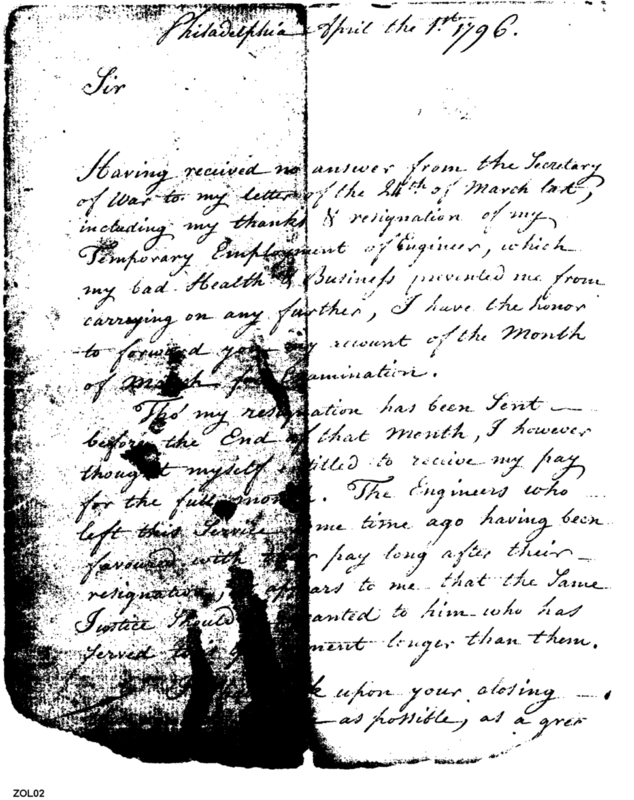 Philadelphia April the 1.st 1796.
Sir
Having received no answer from the Secretary
of War to my letter of the 24th of March last,
including my thanks & resignation of my
Temporary Employment of Engineer, which
my bad Health & Business prevented me from
carrying on any further, I have the honor
to forward you my account of the Month
of March for Examination.
Tho' my resignation has been Sent —
before the End of that Month, I however
thought myself titled to receive my pay
for the full month. The Engineers who
left this Service me time ago having been
favoured with pay long after their —
resignation, ars to me that the Same
Justice Should anted to him who has
Served ment longer than them.
k upon your closing —
— as possible, as a grea
ZOL02